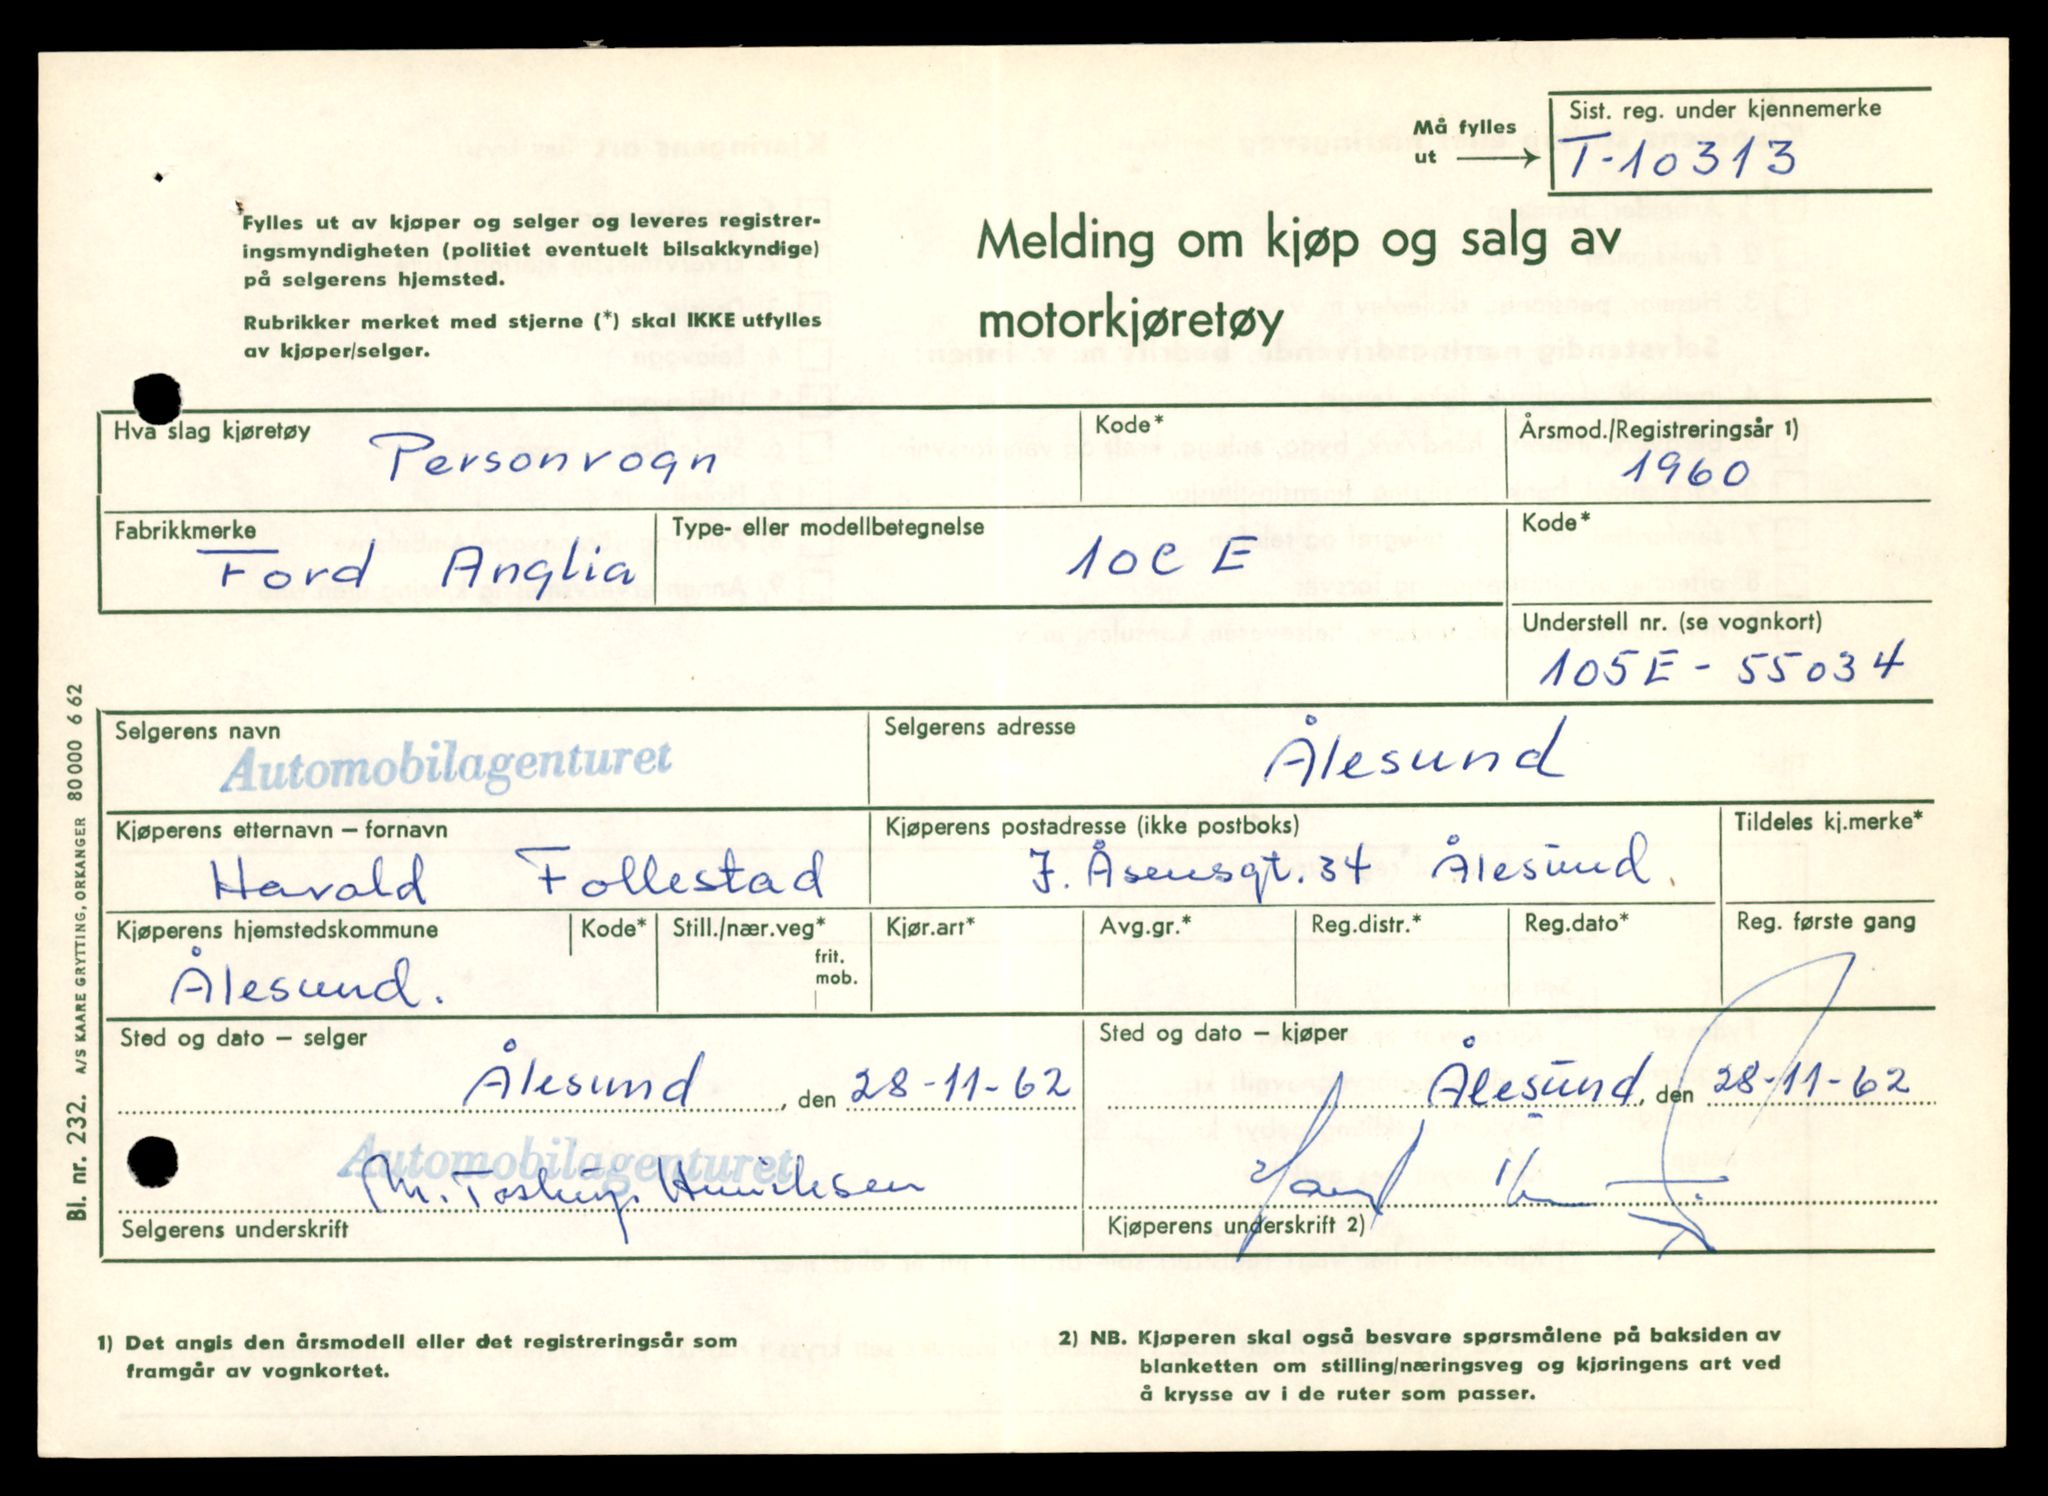 Må fylles
ut
Sist. reg. under kjennemerke
T-10313
Fylles ut av kjøper og selger og leveres registrer-
ingsmyndigheten (politiet eventuelt bilsakkyndige)
på selgerens hjemsted.
Rubrikker merket med stjerne (*) skal IKKE utfylles
av kjøper/selger.
Melding om kjøp og salg av
motorkjøretøy
Hva slag kjøretøy
Personvogn
Kode*
Årsmod./Registreringsår 1)
1960
Fabrikkmerke
Ford Anglia
Type- eller modellbetegnelse
10C E
Kode*
Understell nr. (se vognkort)
105E - 55034
Selgerens navn
Automobilagenturet
Selgerens adresse
Ålesund
Kjøperens etternavn – fornavn
Harald Follestad
Kjøperens postadresse (ikke postboks)
J. Åsensgt. 34 Ålesund.
Tildeles kj.merke*
Kjøperens hjemstedskommune
Ålesund.
Kode*
Still./nær.veg*
frit.
mob.
Kjør.art*
Avg.gr.*
Reg.distr.*
Reg.dato*
Reg. første gang
Sted og dato – selger
Ålesund, den 28-11-62
Sted og dato – kjøper
Ålesund, den 28-11-62
Automobilagenturet
Selgerens underskrift
Kjøperens underskrift 2)
1) Det angis den årsmodell eller det registreringsår som
framgår av vognkortet.
2) NB. Kjøperen skal også besvare spørsmålene på baksiden av
blanketten om stilling/næringsveg og kjøringens art ved
å krysse av i de ruter som passer.
Bl. nr. 232. A/S KAARE GRYTTING, ORKANGER 80000 6 62